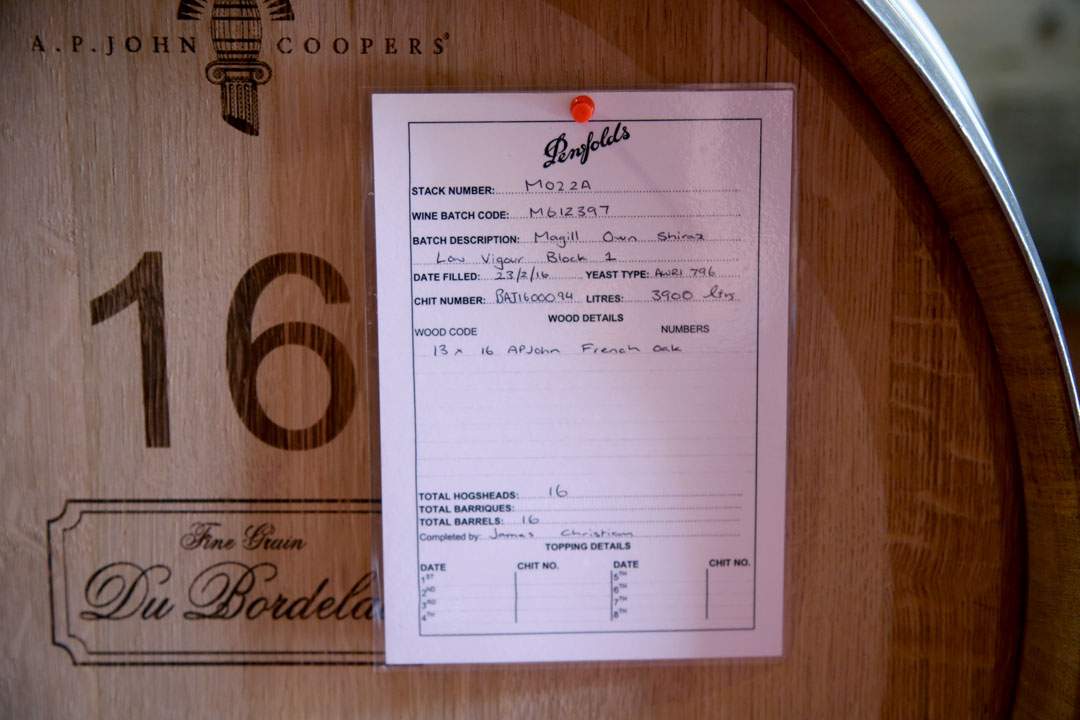 A.P.JOHN COOPERS
16
Fine Grain
Du Bordela
Penfolds
STACK NUMBER: M022A
WINE BATCH CODE: M612397
BATCH DESCRIPTION: Magill Own Shiraz
Low Vigour Block 1
DATE FILLED: 23/2/16 YEAST TYPE: AWRI 796
CHIT NUMBER: BAJ1600094 LITRES: 3900 ltrs
WOOD DETAILS
WOOD CODE NUMBERS
13 x 16 APJohn French Oak
TOTAL HOGSHEADS: 16
TOTAL BARRIQUES:
TOTAL BARRELS: 16
Completed by: James Christian
TOPPING DETAILS
DATE CHIT NO. DATE CHIT NO.
1ST 5TH
2ND 6TH
3RD 7TH
4TH 8TH